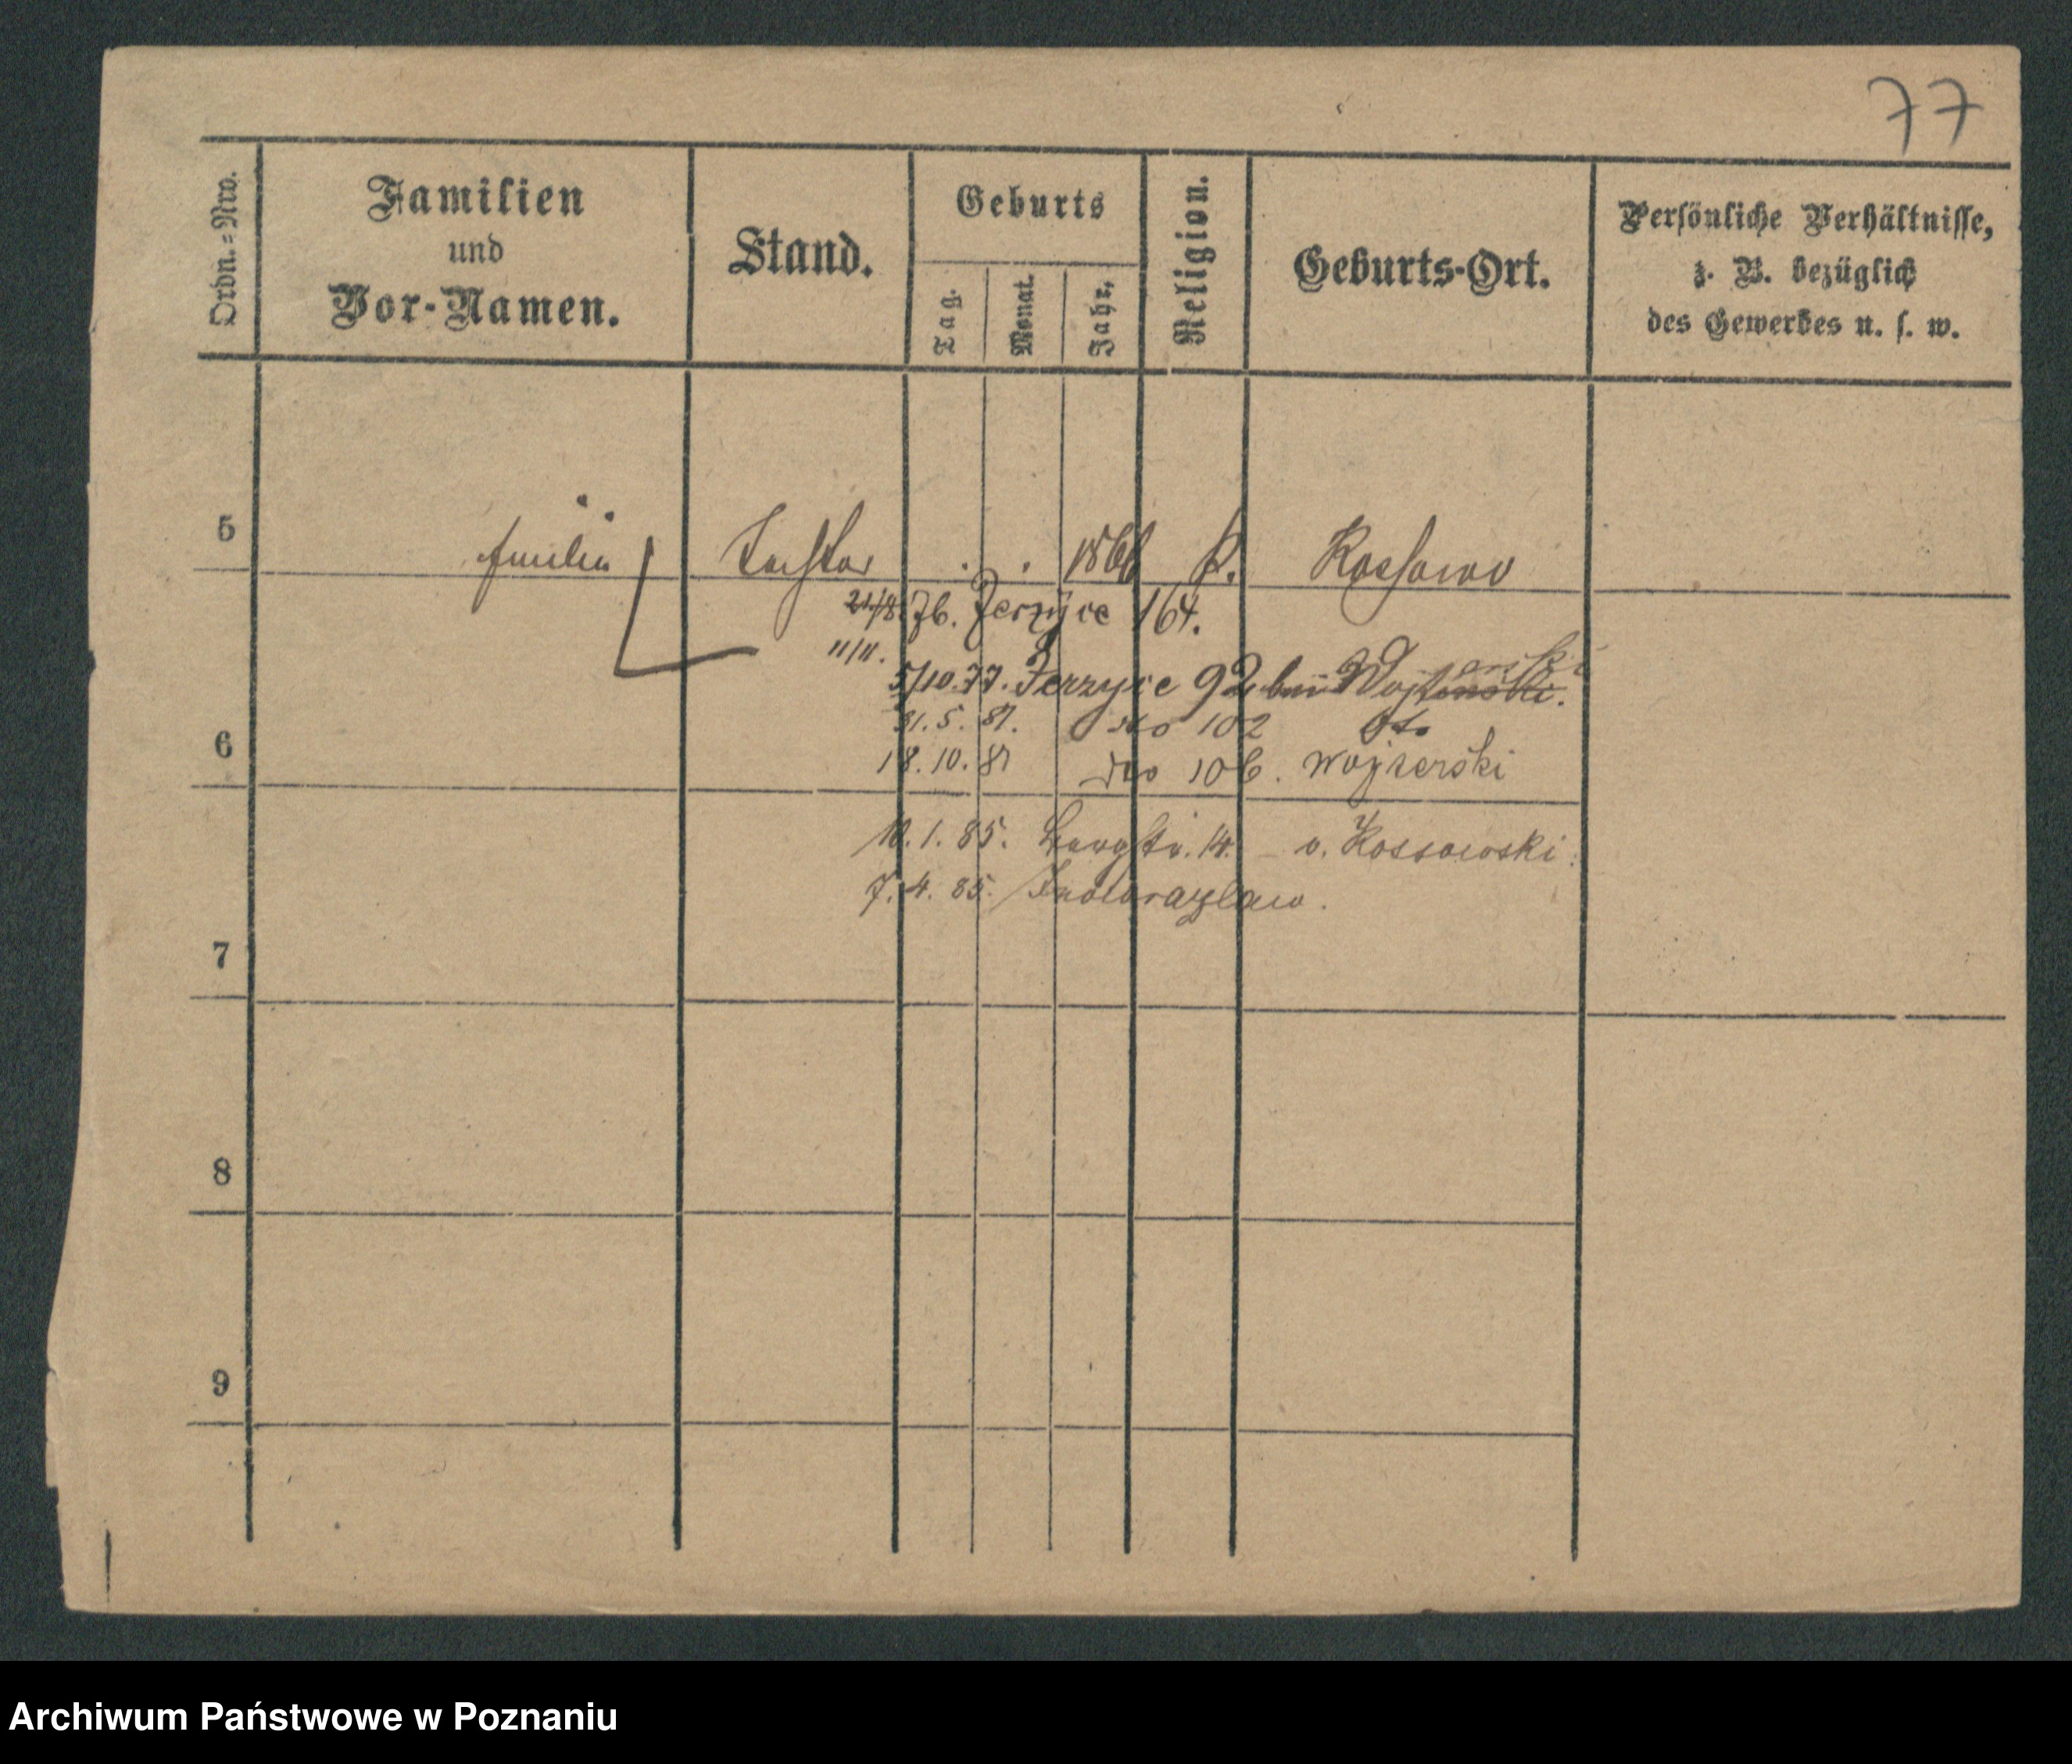 77
Ordn.=Nro.
Familien
und
Vor-Namen.
Stand.
Geburts
Tag.
Monat.
Jahr.
Religion.
Geburts-Ort.
Persönliche Verhältnisse,
z. B. bezüglich
des Gewerbes u. s. w.
5
Emilia Tochter . . 1866 k.
21/8. 76. Jerzyce 164.
11/11.
5/10. 77. Jerzyce 92 bei
31.5.81. dto 102 dto
6
18.10.81 dto 106. Wojcerski
10.1.85. Langstr. 14. - v. Kossowski.
7.4.85. Inowrazlaw.
7
8
9
Archiwum Państwowe w Poznaniu